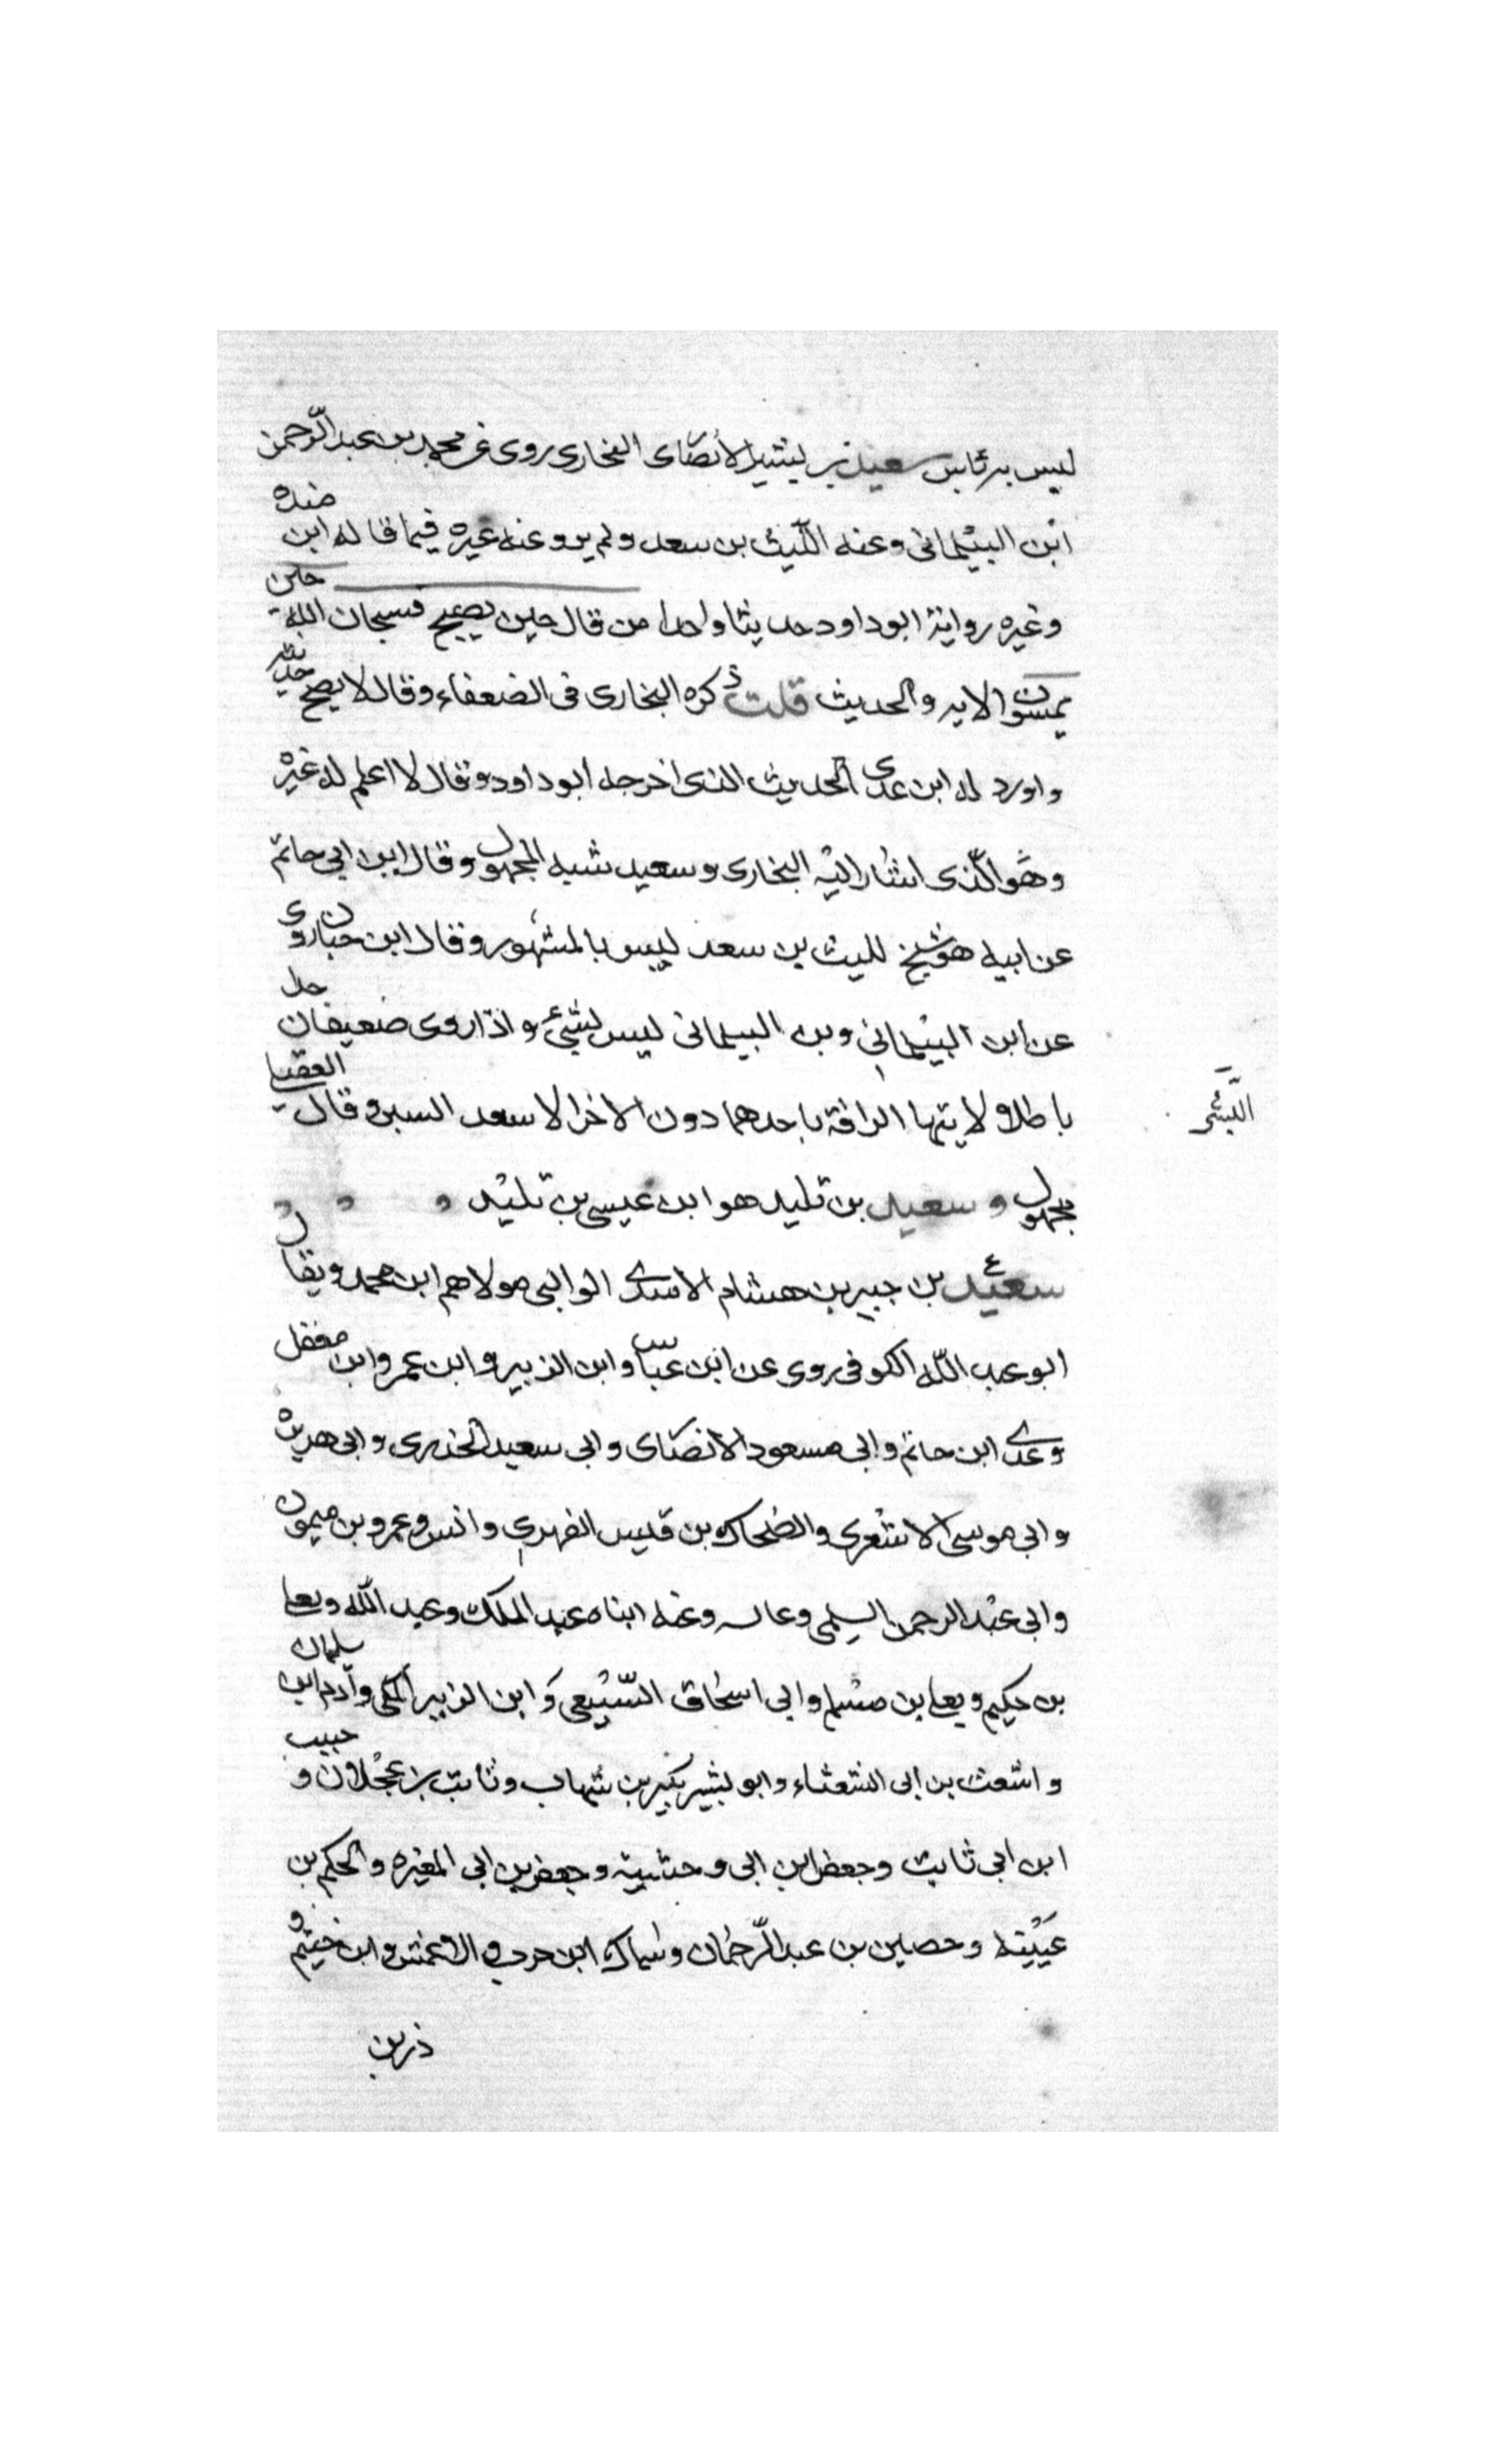 ليس به باس سعيد بن بشير الانصارى النجارى روى عن محمد بن عبد الرّحمن
ابن البيْلمانى وعنه اللّيث بن سعد ولم يرو عنه غيره فيما قاله ابن منده
وغيره روايته ابو داود حديثا واحدا من قال حين يصبح فسبحان الله حين
تمسون الايه والحديث قلت ذكره البخارى فى الضعفاء وقال لا يصح حديثه
واورد له ابن عدى الحديث الذى اخرجه ابو داود وقال لا اعلم له غيره
وهو الّذى اشار اليْه البخارى وسعيد شبه المجهول وقال ابن ابى حاتم
عن ابيه هو شيخ لليث بن سعد ليس بالمشهور وقال ابن حبان روى
عن ابن البيْلمانى وبن البيلمانى ليس بشئ واذا روى ضعيفان
باطلا ولا يتها الزاقة باحدهما دون الاخر الا سعد السبر وقال العقيلى
الّتبىّ
مجهول و سعيد بن تليد هو ابن عيسى بن تليْد
سعيْد بن جبير بن هشام الاسدى الوالبى مولاهم ابن محمد ويقال
ابو عبد اللّه الكوفى روى عن ابن عباس وابن الزبير وابن عمر وابن مغفل
وعدى ابن حاتم وابى مسعود الانصارى وابى سعيد الخدرى وابى هريرة
وابى موسى الاشعرى والضحاك بن قيس الفهرى وانس وعمرو بن ميمون
وابى عبْد الرحمن السلمى وعنه ابناه عبد الملك وعبد اللّه ويعلى
بن حكيم ويعلى بن مسْلم وابى اسحاق السّبيْعى وابن الزبير المكى وآدم ابن سليمان
واشعث بن ابى الشعثاء وابو بشير بكير بن شهاب وثابت بن عجْلان و حبيب
ابن ابى ثابت وجعفر ابن ابى وحشيته وجعفر بن ابى المغيره والحكم بن
عيَيْنه وحصين بن عبد الرّحمان وسماك ابن حرب والاعمش وابن خيثم و
ذر بن